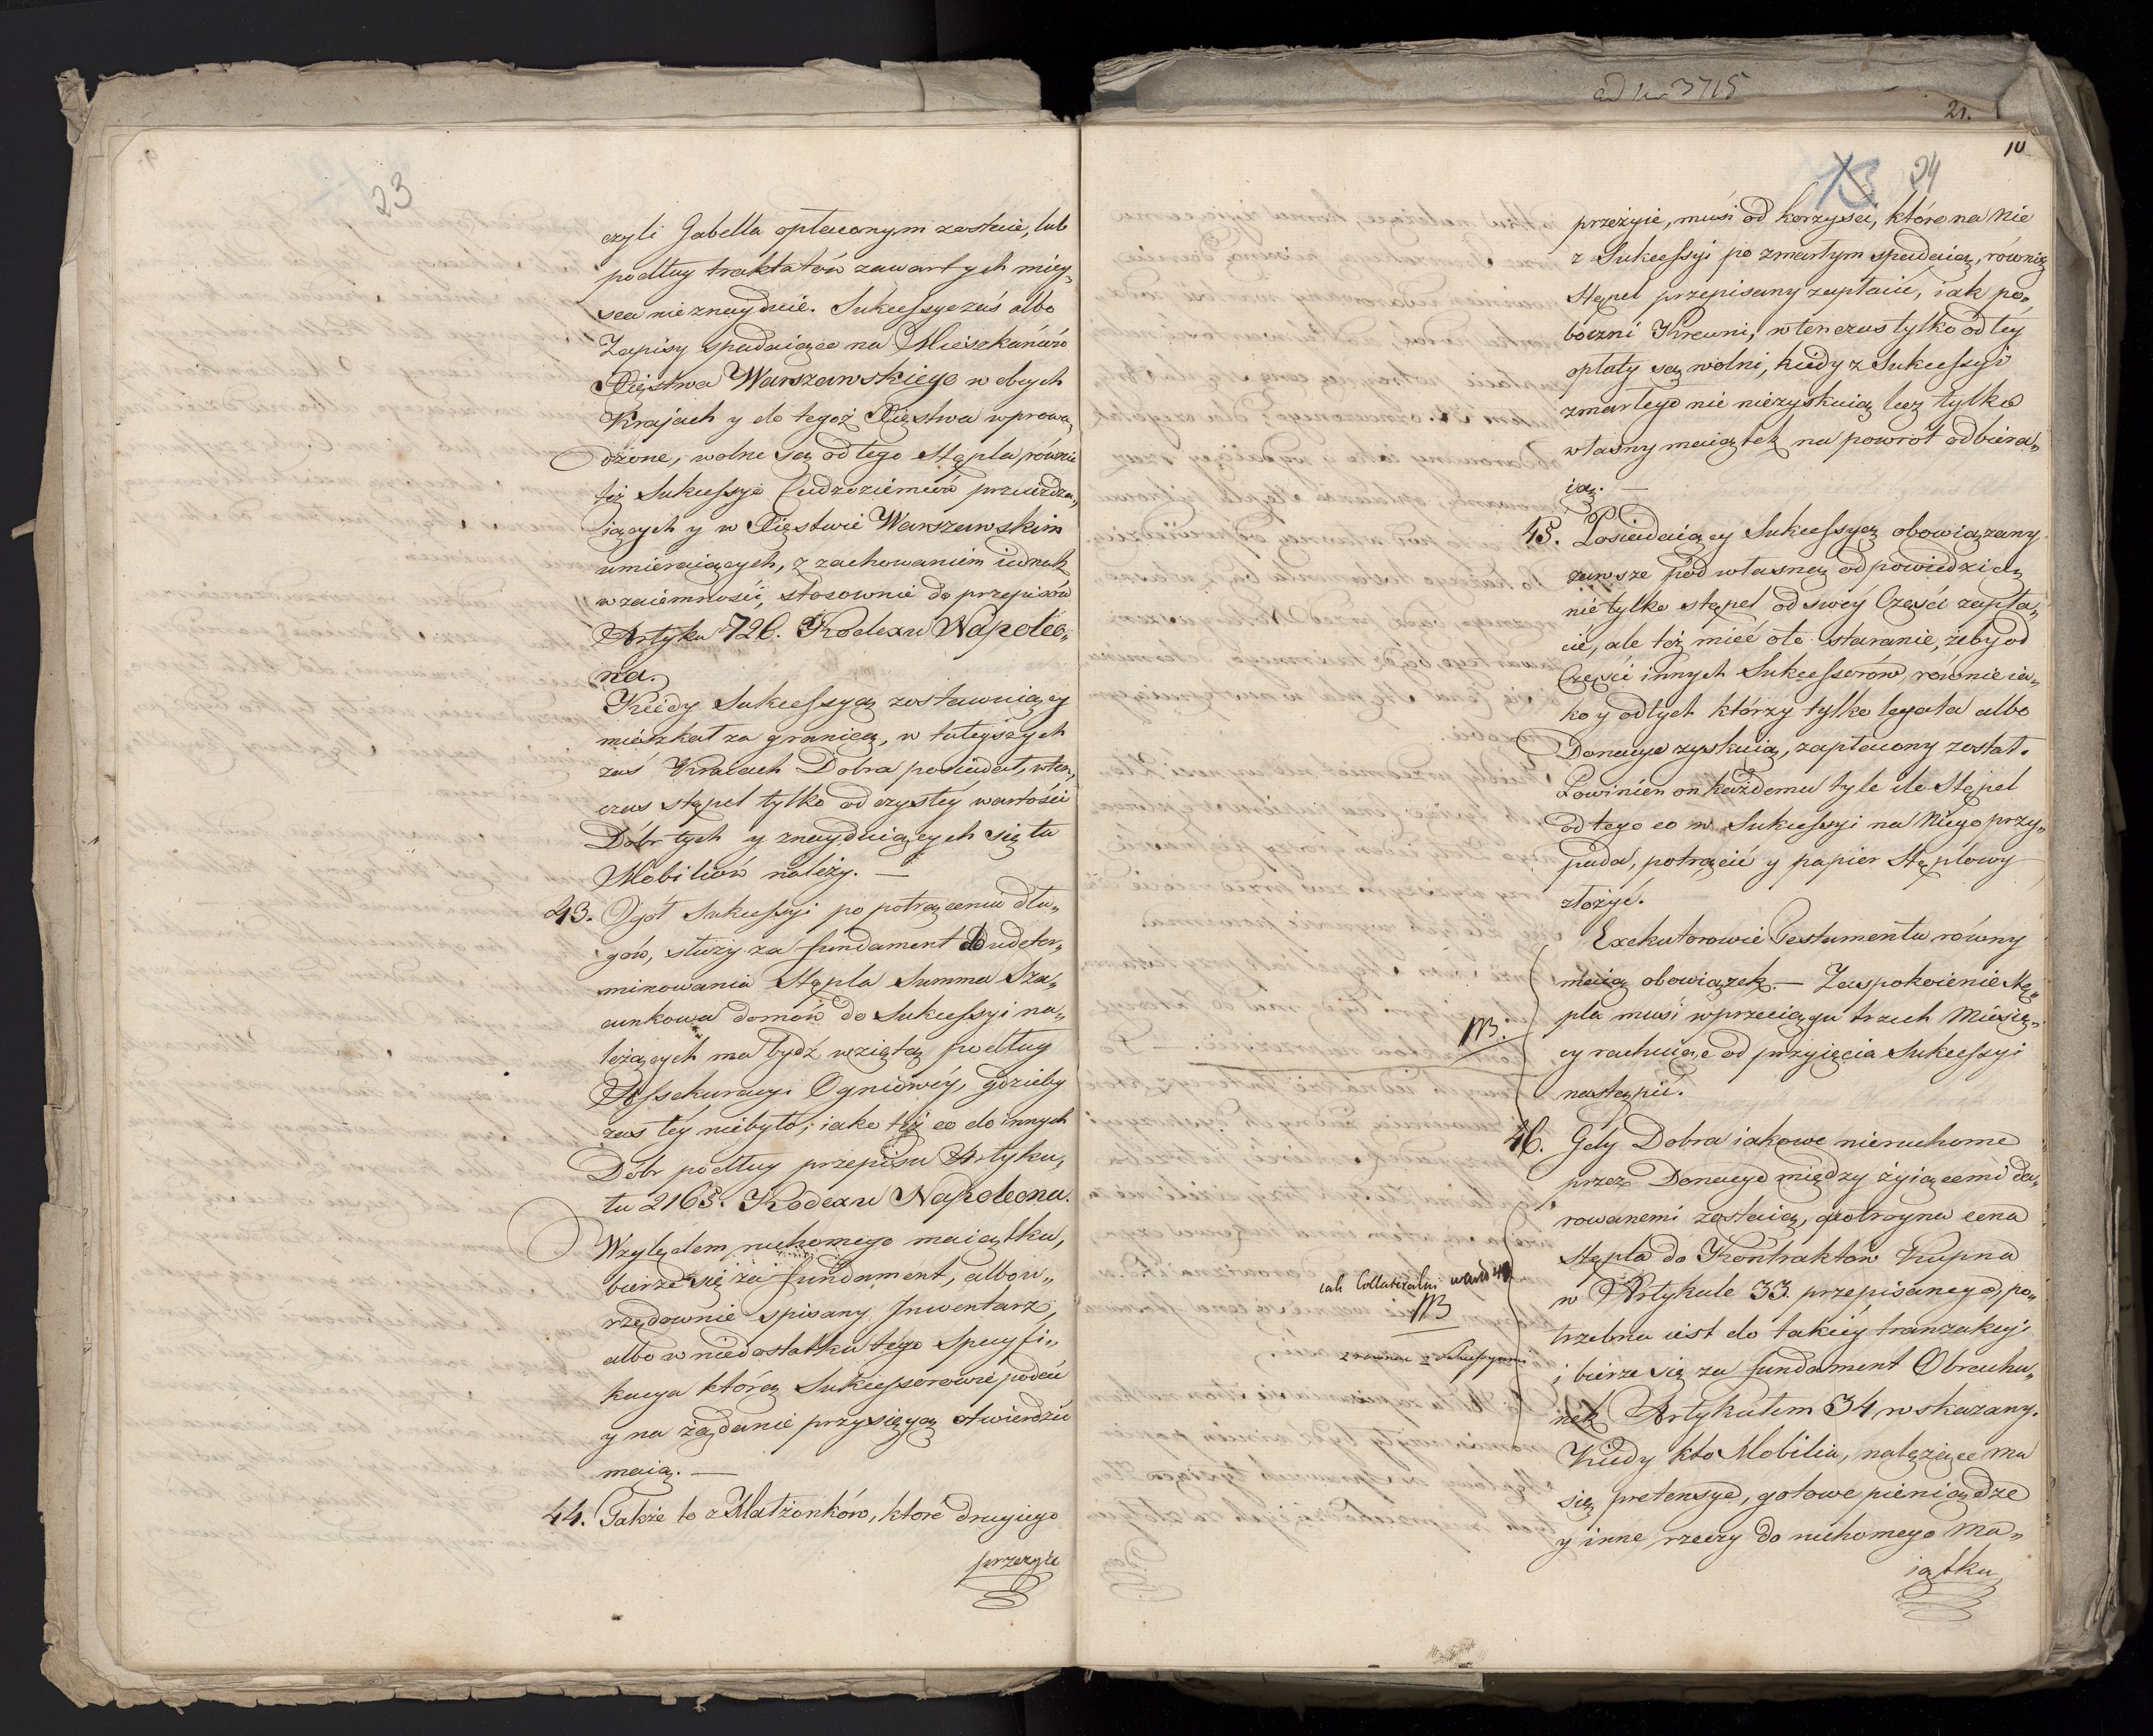 23
czyli Gabella opłaconym zostaie, lub
podług traktatów zawartych miey„
sca nie znayduie. Sukcessye zaś albo
Zapisy spadaiące na Mieszkańców
Xięstwa Warszawskiego w obcych
Krajach y do tegoż Xięstwa wprowa„
dzone, wolne są od tego Stępla, równie
też Sukcessye Cudzoziemców przeieżdża„
iących y w Xięstwie Warszawskim
umieraiących, z zachowaniem iednak
wzaiemności, stosownie do przepisów
Artyku 726. Kodexu Napoleo„
na.
Kiedy Sukcessyą zostawuiący
mieszkał za granicą, w tuteyszych
zaś Kraiach Dobra posiadał, wten„
czas stępel tylko od czystéy wartości
Dóbr tych y znayduiących się tu
Mobiliów należy. —
43. Ogół Sukcessyi po potrąceniu dłu„
gów, służy za fundament do udeter„
minowania Stępla Summa Sza„
cunkowa domów do Sukcessyi na„
leżących ma bydź wziętą podług
Assekuracyi Ogniowéy, gdzieby
zaś téy niebyło, iako też co do innych
Dóbr podług przepisu Artyku„
łu 2165. Kodexu Napoleona.
Względem ruchomego maiątku,
bierze się za fundament, albo u„
rzędownie spisany Inwentarz,
albo w niedostatku tego Specyfi„
kacya którą Sukcessorowie podać
y na żądanie przysięgą stwierdzić
maią. —
44. Także to z Małżonków, które drugiego
przeżyie
ad Nr 3715
21.
10
13 24
przeżyie, musi od korzyści, które na nie
z Sukcessyi po zmarłym spadaią, równię
Stępel przepisany zapłacić, iak po„
boczni Krewni, wtenczas tylko od téy
opłaty są wolni, kiedy z Sukcessyi
zmarłego nic niezyskuią lecz tylko
własny maiątek na powrót odbiera„
ią. —
45. Posiadaiący Sukcessyą obowiązany
zawsze pod własną odpowiedzią
nie tylko stępel od swéy Części zapła„
cić, ale też mieć oto staranie, żeby od
Części innych Sukcessorów, równie ia„
ko y od tych którzy tylko legata albo
Donacye zyskuią, zapłacony został.
Powinien on każdemu tyle ile Stępel
od tego co w Sukcessyi na Niego przy„
pada, potrącić y papier Stęplowy
złożyć.
Exekutorowie Testamentu równy
maią obowiązek. — Zaspokoienie Stę„
pla musi w przeciągu trzech Miesię„
cy rachuiąc od przyięcia Sukcessyi
nastąpić.
NB.
46. Gdy Dobra iakowe nieruchome
przez Donacye między żyiącemi da„
rowanemi zostaią, potroyna cena
stępla do Kontraktów Kupna
w Artykule 33. przepisanego, po„
trzebna iest do takiéy tranzakcyi
i bierze się za fundament Obrachu„
nek Artykułem 34 wskazany.
Kiedy kto Mobilia, należące ma
się pretensye, gotowe pieniądze
y inne rzeczy do ruchomego Ma„
iątku
iak Collateralni
NB
z Sukcessyami